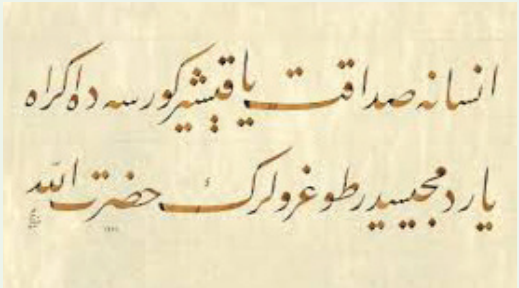 انسانه صداقت یاقیشیر كورسه ده اكراه
یاردمجیسیدر طوغرولرك حضرت الله